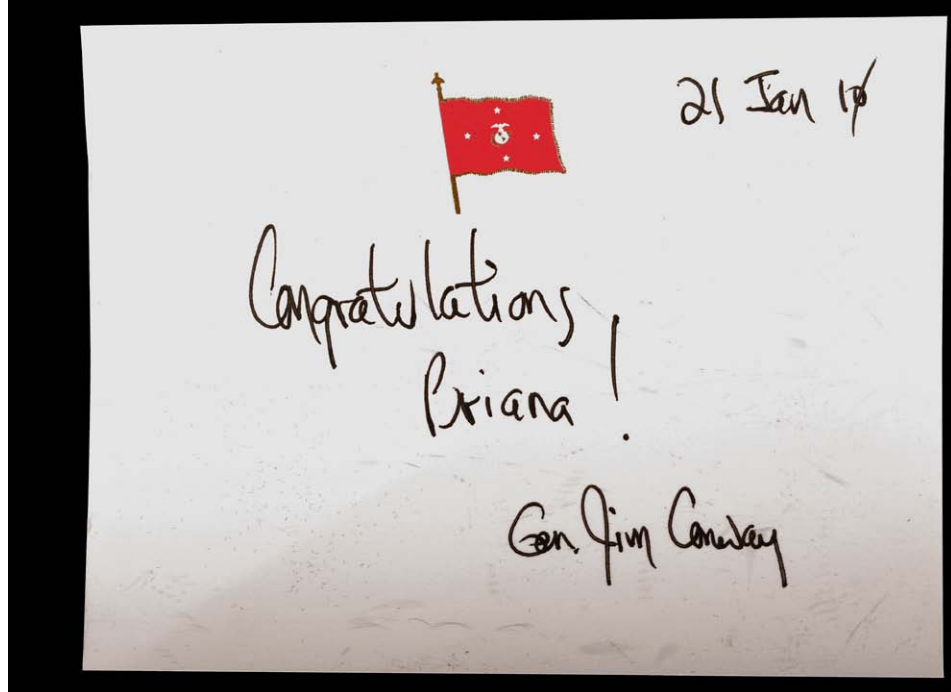 21 Jan 10
Congratulations,
Briana!
Gen. Jim Conway